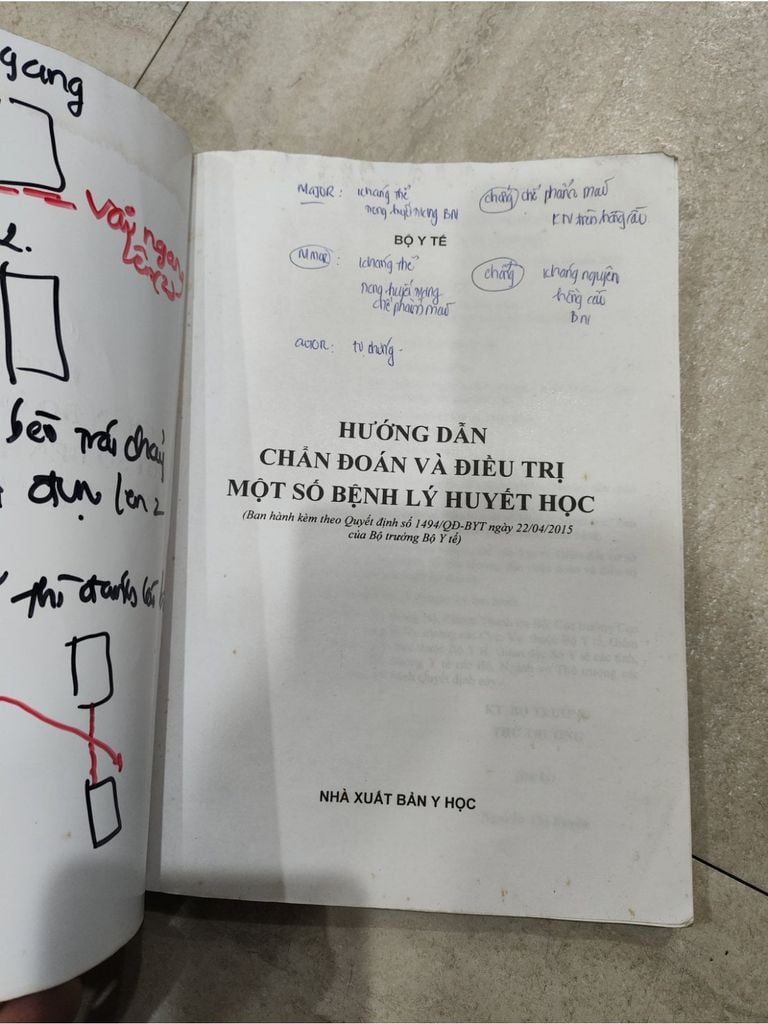 gang
vay ngang
lên (2)
2.
béo trái chảy
đưa lên 2
thì đánh
MAJOR: kháng thể
trong huyết tương BN
chống chế phẩm máu
KN trên hồng cầu
BỘ Y TẾ
: kháng thể
trong huyết tương
chế phẩm máu
chống kháng nguyên
hồng cầu
BN
: tự chứng -
HƯỚNG DẪN
CHẨN ĐOÁN VÀ ĐIỀU TRỊ
MỘT SỐ BỆNH LÝ HUYẾT HỌC
(Ban hành kèm theo Quyết định số 1494/QĐ-BYT ngày 22/04/2015
của Bộ trưởng Bộ Y tế)
NHÀ XUẤT BẢN Y HỌC